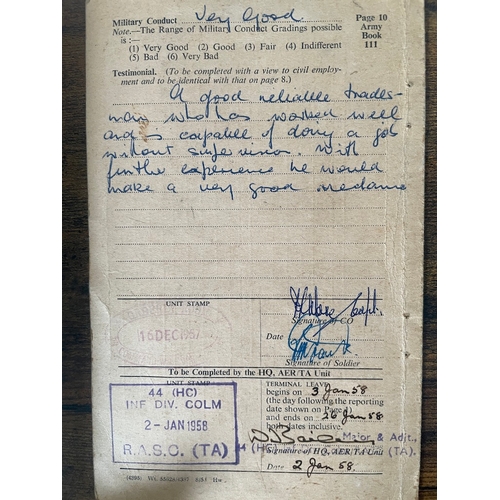 Military Conduct Very Good Page 10
Note.—The Range of Military Conduct Gradings possible Army
is :— Book
(1) Very Good (2) Good (3) Fair (4) Indifferent 111
(5) Bad (6) Very Bad
Testimonial. (To be completed with a view to civil employ-
ment and to be identical with that on page 8.)
A good reliable trades-
man who has worked well
and is capable of doing a job
without supervision. With
further experience he would
make a very good mechanic
UNIT STAMP
Capt.
Signature of CO
16 DEC 1957
Date
Signature of Soldier
To be Completed by the HQ, AER/TA Unit
UNIT STAMP
44 (HC)
INF DIV. COLM
2 - JAN 1958
R.A.S.C. (TA)
TERMINAL LEAVE
begins on 3 Jan 58
(the day following the reporting
date shown on Page
and ends on 26 Jan 58
both dates inclusive.
Major & Adjt,
Signature of HQ, AER/TA Unit (TA).
Date 2 Jan 58.